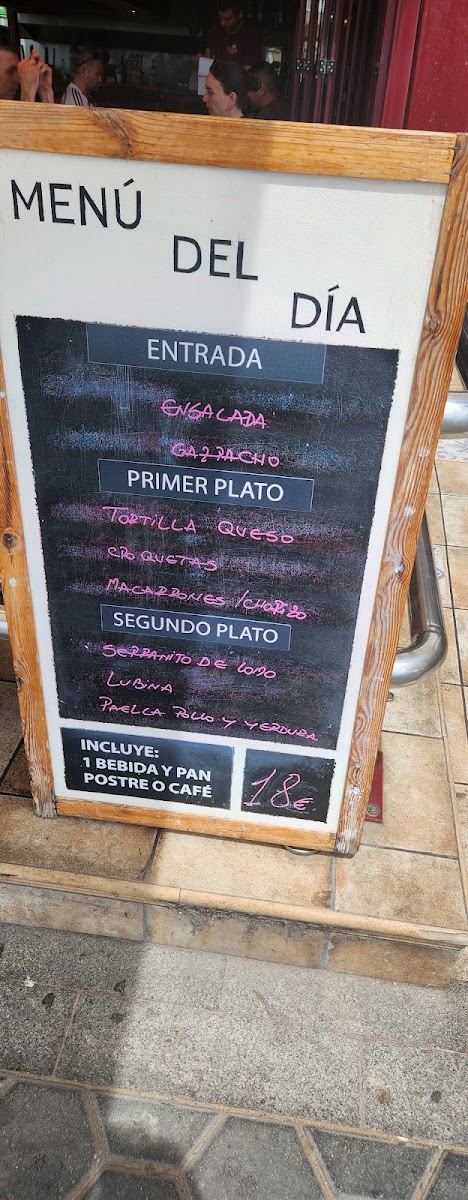 MENÚ
DEL
DÍA
ENTRADA
ENSALADA
GAZPACHO
PRIMER PLATO
TORTILLA QUESO
CROQUETAS
MACARRONES / CHORIZO
SEGUNDO PLATO
SERRANITO DE LOMO
LUBINA
PAELLA POLLO Y VERDURA
INCLUYE:
1 BEBIDA Y PAN
POSTRE O CAFÉ
18€